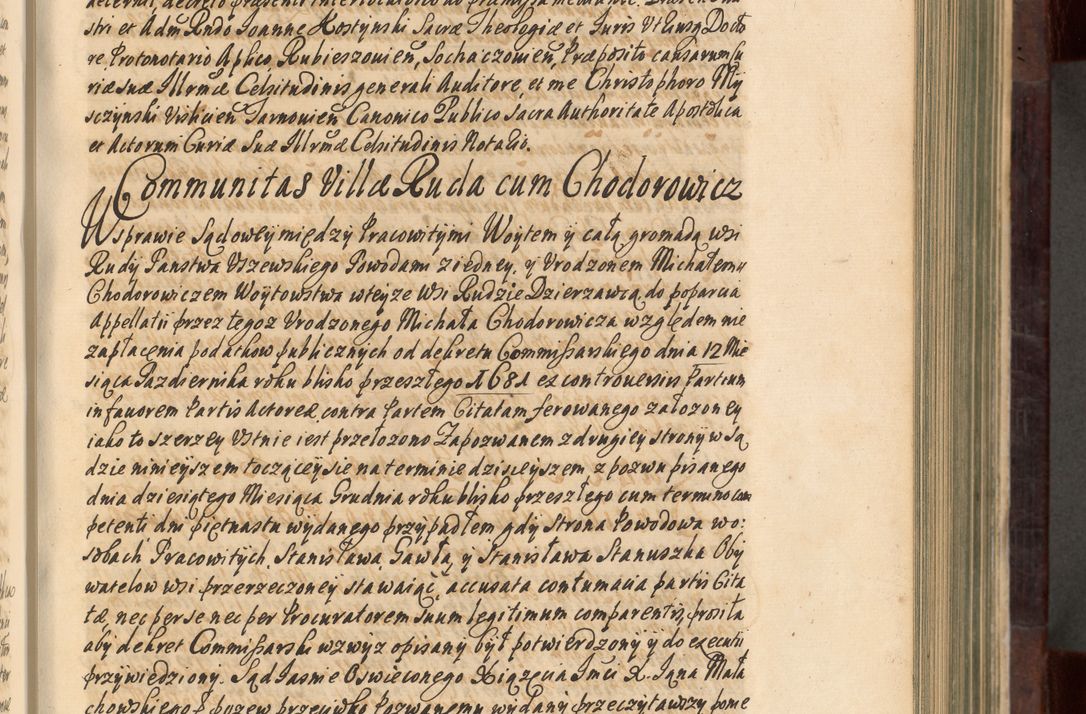 stri et Adm Rndo Joanne Hostynski Sacræ Theologiæ et Juris Vtriusq Docto
re Protonotario Aplico, Rubieszowien, Sochaczowien, Præposito causarum Cu
riæ suæ Illrmæ Celsitudinis generali Auditore, et me Christophoro My
sczynski Vislicien Tarnovien Canonico Publico Sacra Authoritate Apostolica
et Actorum Curiæ Suæ Illrmæ Celsitudinis Notario.
Communitas Villæ Ruda cum Chodorowicz
W sprawie Sądowey między Pracowitymi Woytem y całą gromadą wsi
Rudy Panstwa Vszewskiego Powodami z iedney, y Vrodzonem Michałem
Chodorowiczem Woytowstwa wteyze Wsi Rudzie Dzierzawcą, do poparcia
Appellatii przez tegoz Vrodzonego Michała Chodorowicza względem nie
zapłacenia podatkow publicznych od dekretu Commissarskiego dnia 12 Mie
siąca Pazdziernika roku blisko przeszłego 1681 ex controversiis Partium
in fauorem Partis Actoreæ contra Partem Citatam ferowanego załozoney
iako to szerzey Vstnie iest przełozono Zapozwanem z drugiey strony w Są
dzie ninieyszem toczącey sie na terminie dzisieyszem z pozwu pisanego
dnia dziesiątego Miesiąca Grudnia roku blisko przeszłego cum termino com
petenti dni piętnastu wydanego przypadłem gdy Strona Powodowa w o:
sobach Pracowitych, Stanisława Gawła, y Stanisława Stanuszka Oby
watelow wsi przerzeczoney stawaiąc, accusata contumacia partis Cita
tæ, nec per se nec per Procuratorem suum legitimum comparentis, prosiła
aby dekret Commissarski wzwyz opisany był potwierdzony y do executii
przywiedziony. Sąd Jasnie Oswieconego Xiązęcia Jmci X. Jana Mała
chowskiego pozew przeciwko Pozwanemu wydany przeczytawszy pome